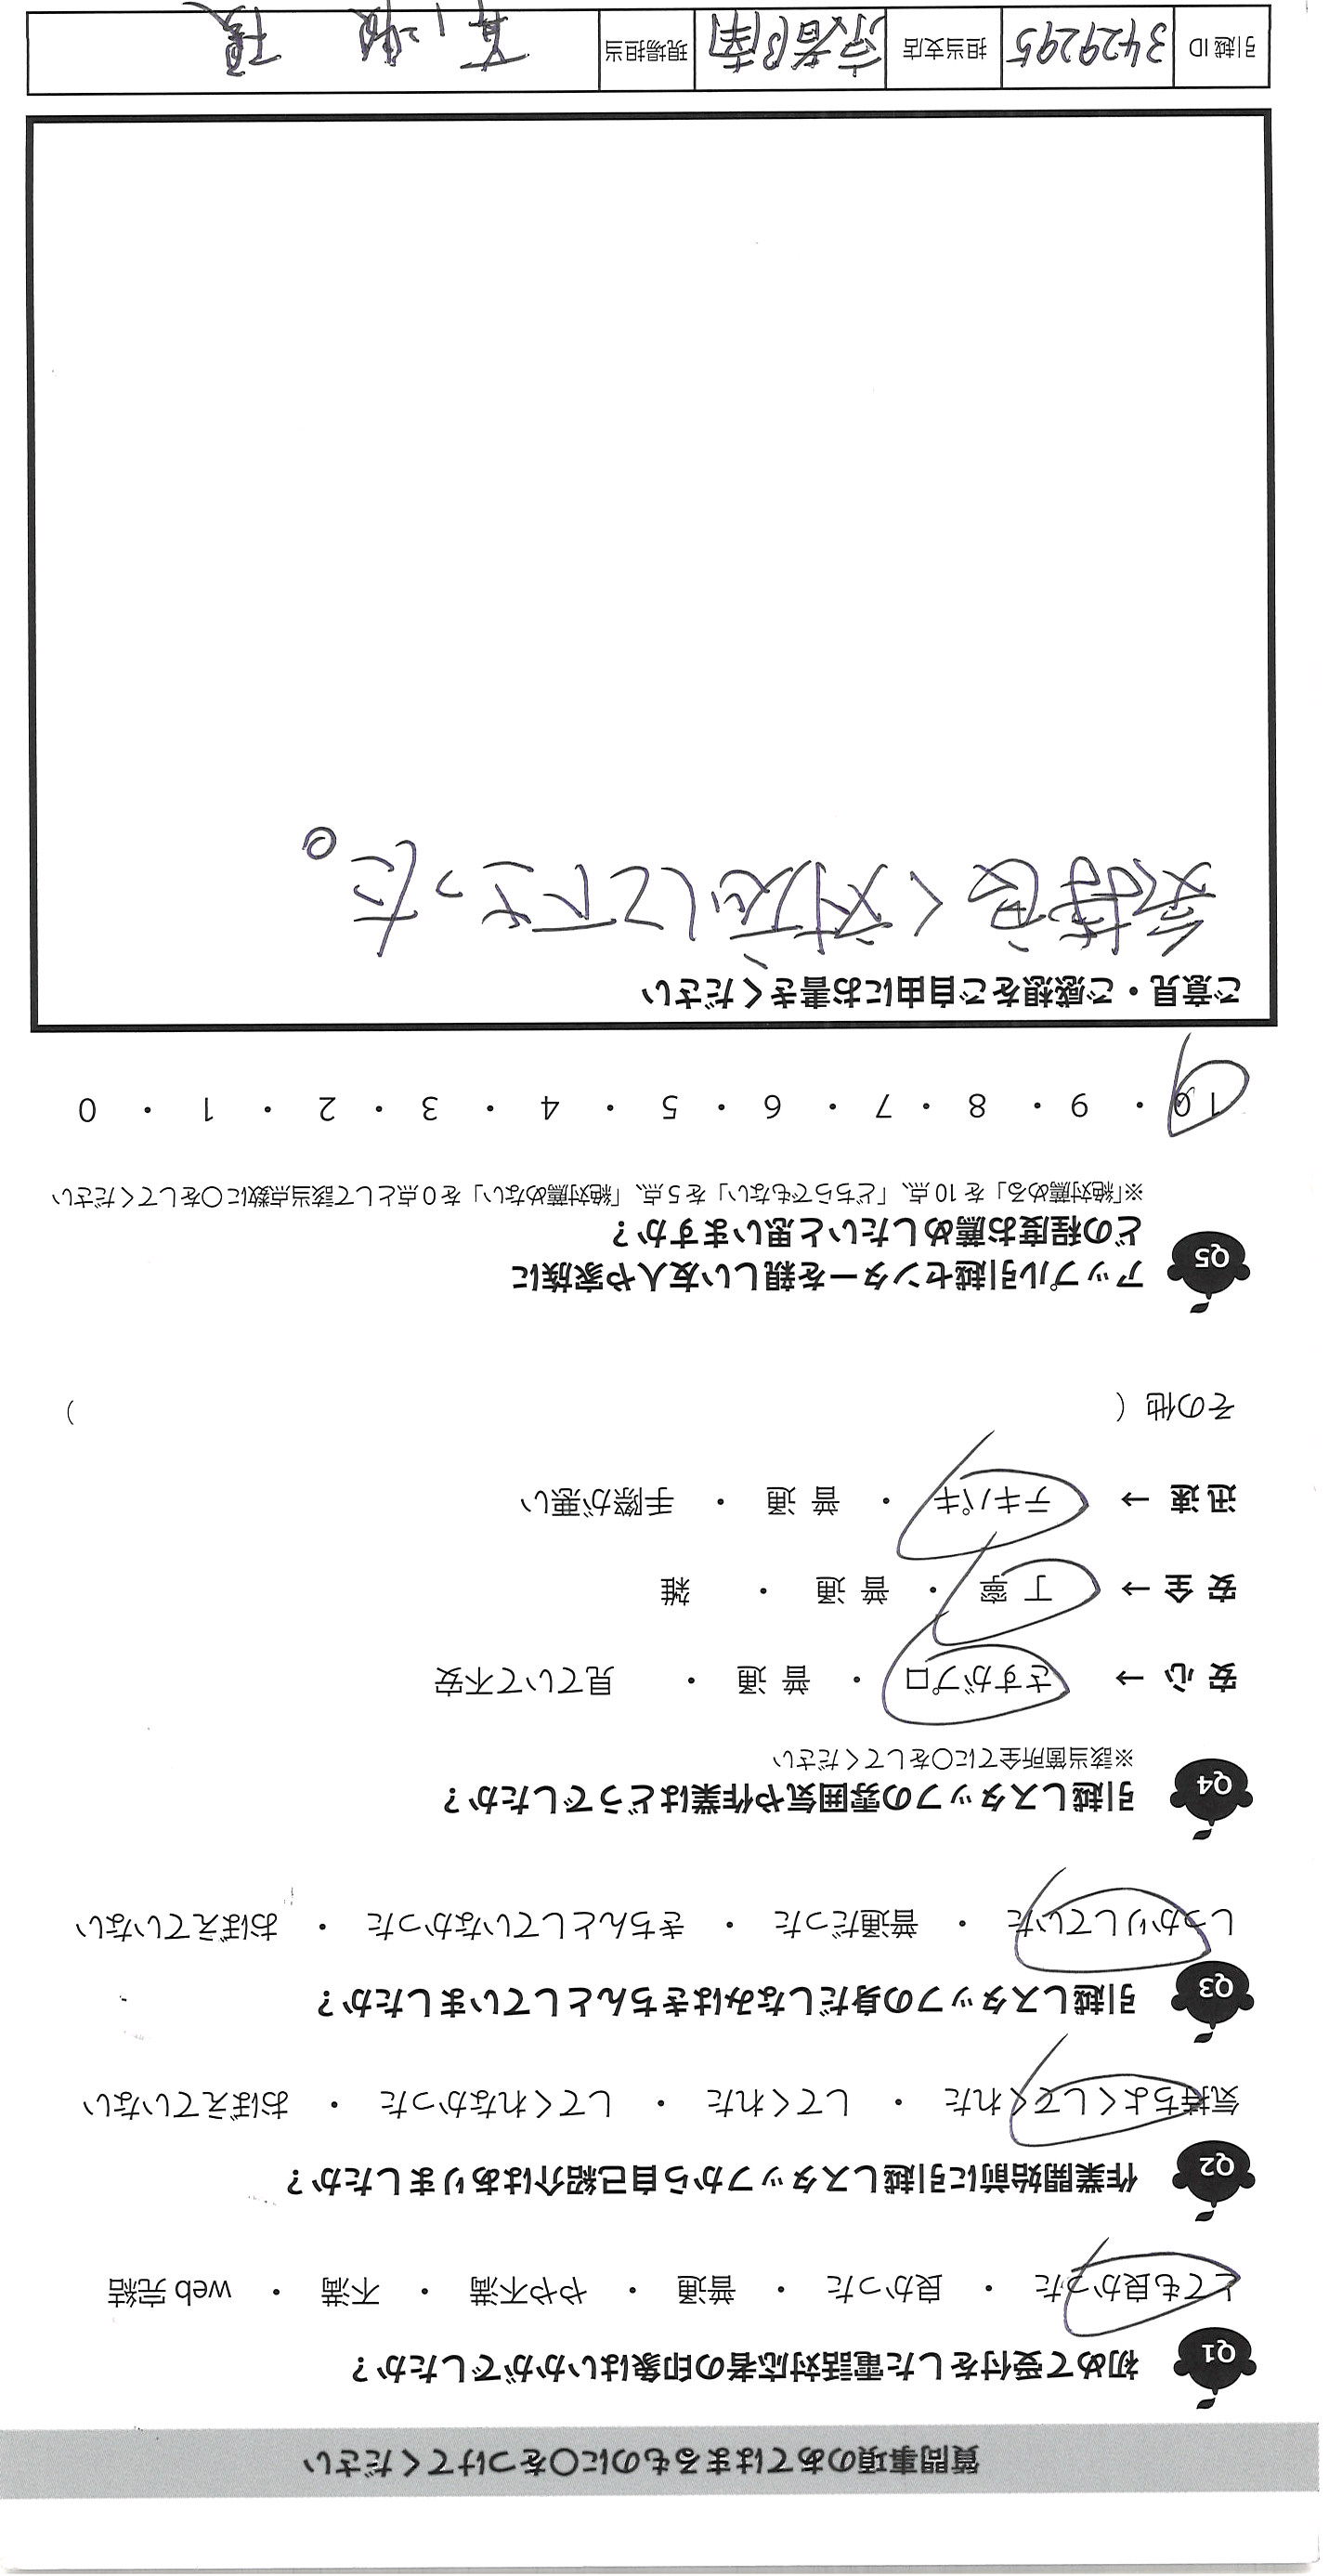 質問事項のあてはまるものに〇をつけてください
Q1 初めて受付をした電話対応者の印象はいかがでしたか？
とても良かった ・ 良かった ・ 普通 ・ やや不満 ・ 不満 ・ web 完結
Q2 作業開始前に引越しスタッフから自己紹介はありましたか？
気持ちよくしてくれた ・ してくれた ・ してくれなかった ・ おぼえていない
Q3 引越しスタッフの身だしなみはきちんとしていましたか？
しっかりしていた ・ 普通だった ・ きちんとしていなかった ・ おぼえていない
Q4 引越しスタッフの雰囲気や作業はどうでしたか？
※該当箇所全てに〇をしてください
安 心 → さすがプロ ・ 普 通 ・ 見ていて不安
安 全 → 丁 寧 ・ 普 通 ・ 雑
迅 速 → テキパキ ・ 普 通 ・ 手際が悪い
その他（ ）
Q5 アップル引越センターを親しい友人や家族に
どの程度お薦めしたいと思いますか？
※「絶対薦める」を 10 点、「どちらでもない」を 5 点、「絶対薦めない」を 0 点として該当点数に〇をしてください
10 ・ 9 ・ 8 ・ 7 ・ 6 ・ 5 ・ 4 ・ 3 ・ 2 ・ 1 ・ 0
ご意見・ご感想をご自由にお書きください
気持良く対応して下さった。
引越 ID 3429295 担当支店 京都南 現場担当